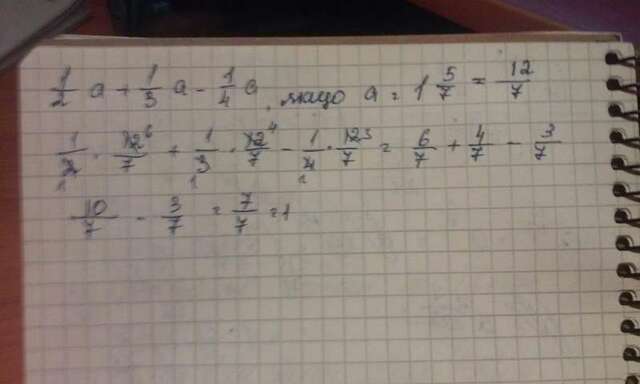 1/2 a + 1/3 a - 1/4 a, якщо a = 1 5/7 = 12/7
1/2 · 12/7 + 1/3 · 12/7 - 1/4 · 12/7 = 6/7 + 4/7 - 3/7
10/7 - 3/7 = 7/7 = 1